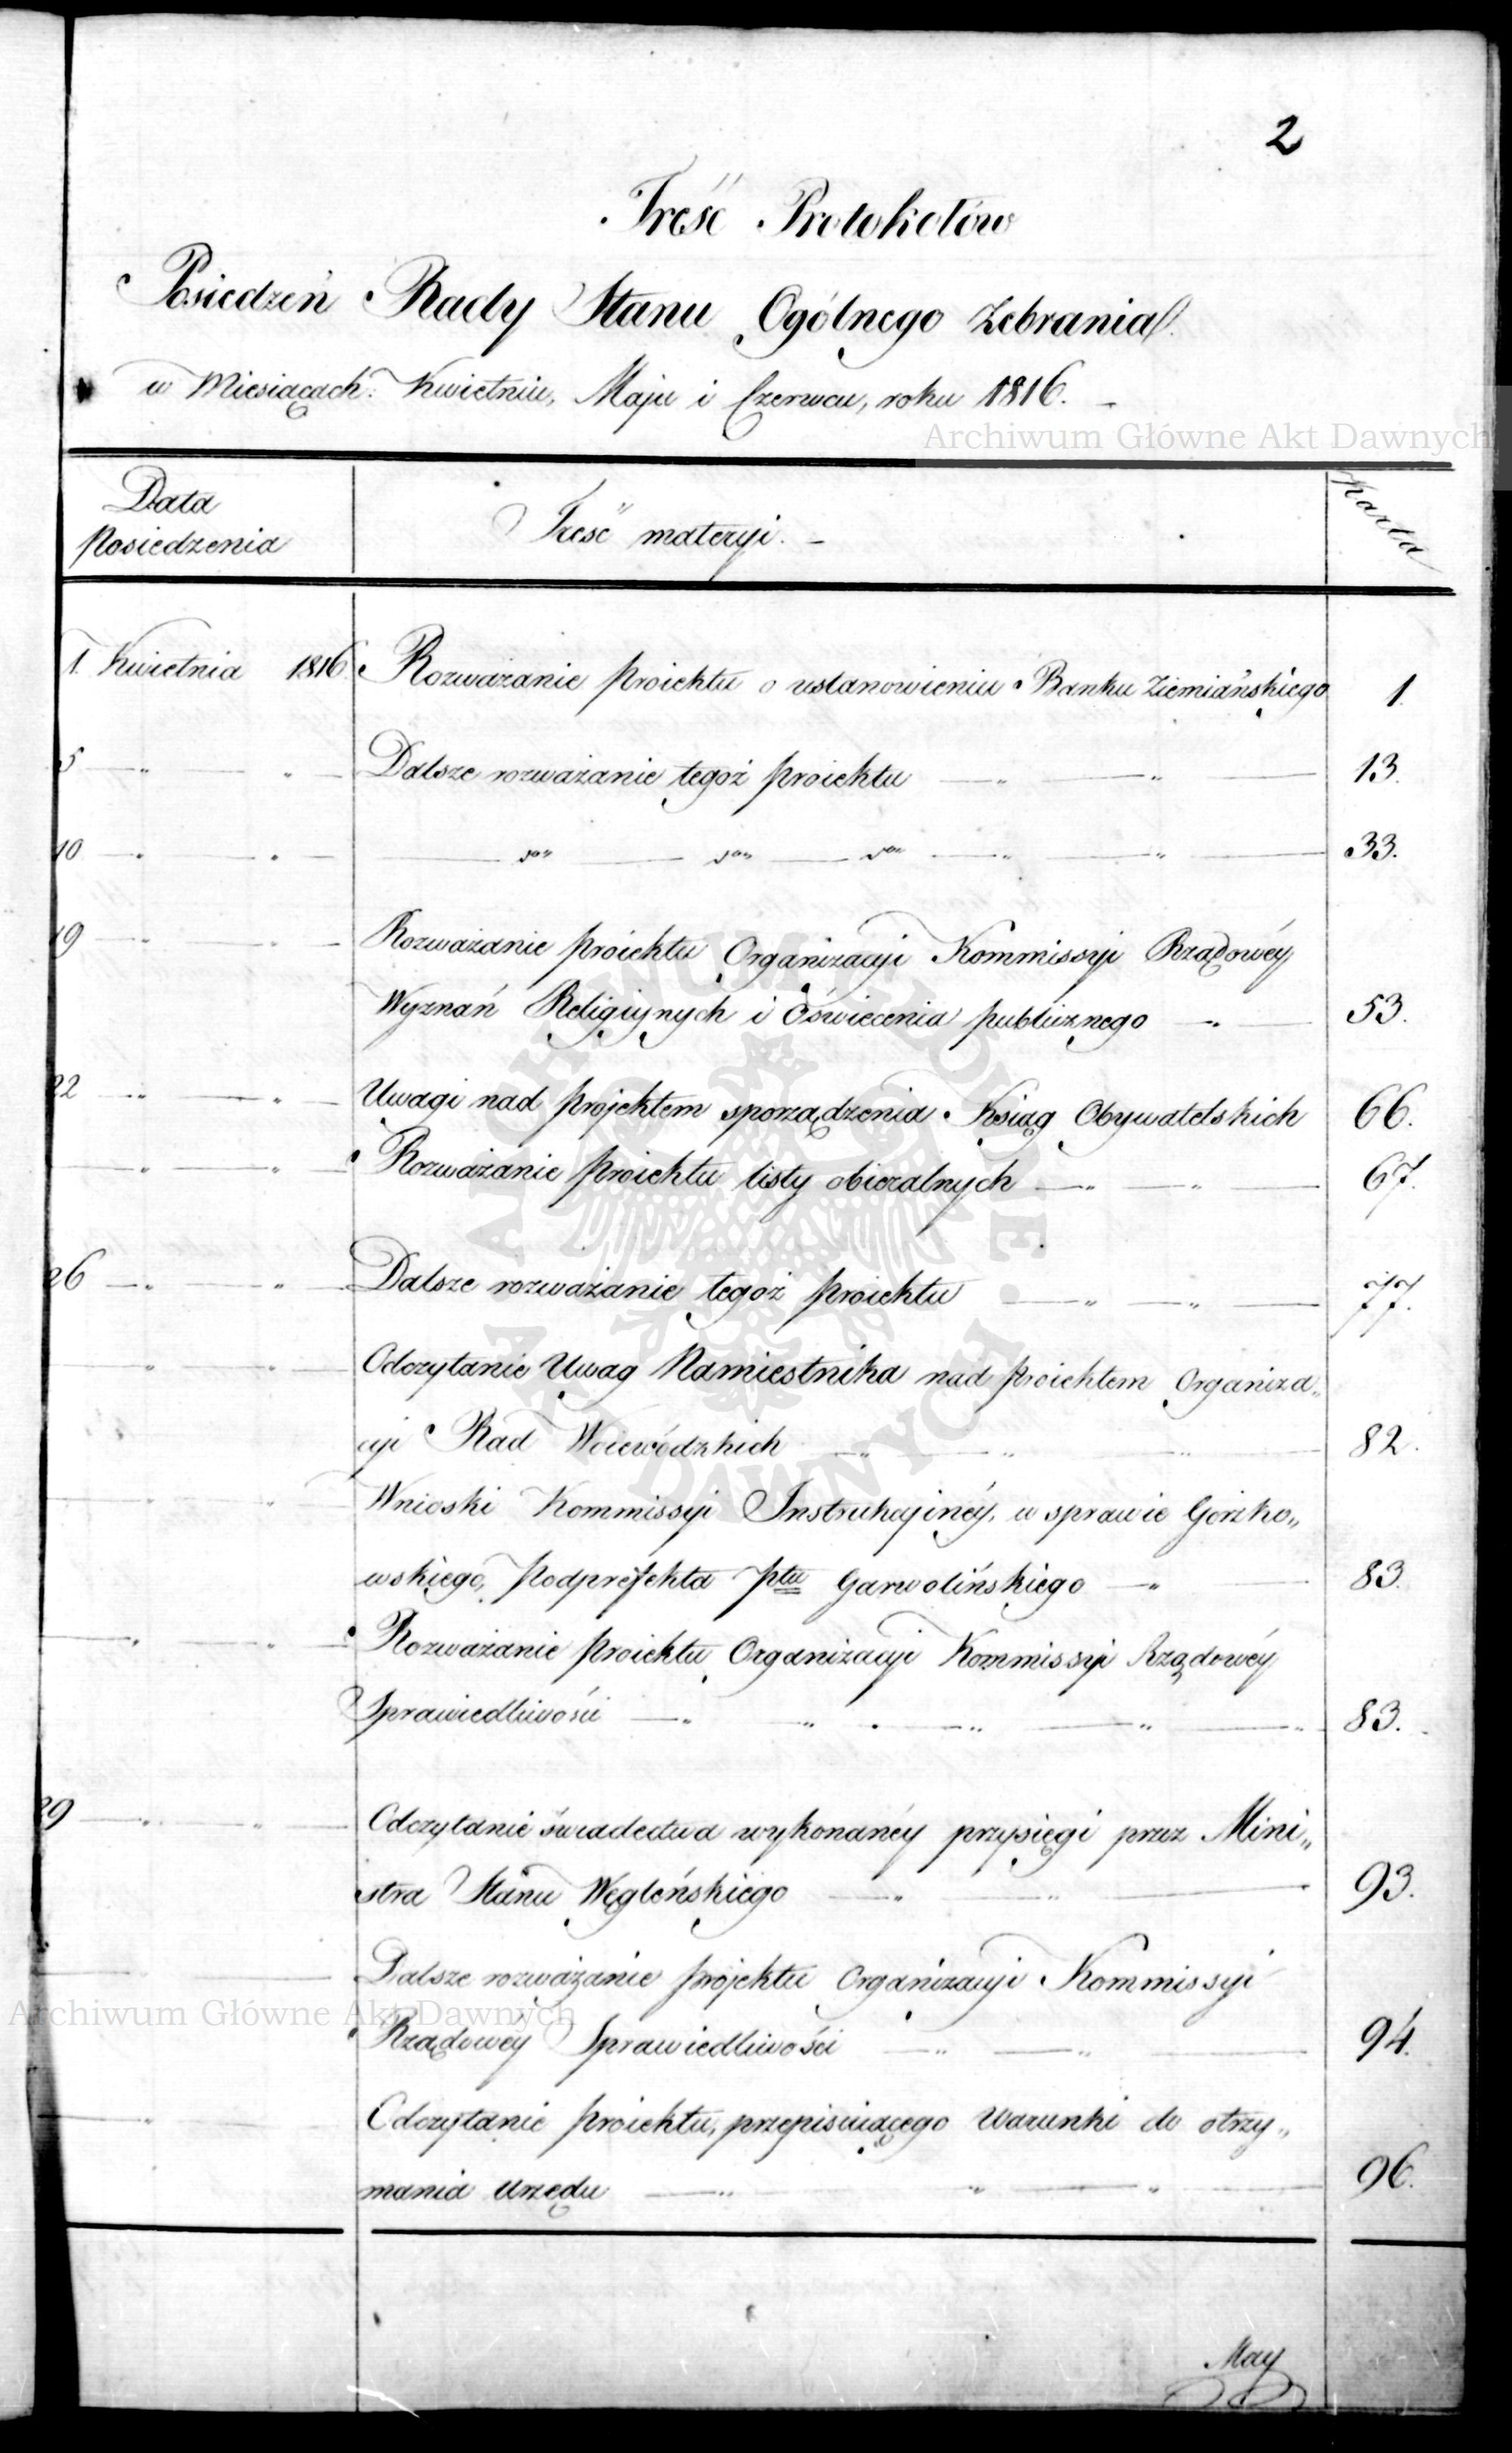 2
Treść Protokołów
Posiedzeń Rady Stanu Ogólnego Zebrania.
w Miesiącach: Kwietniu, Maju i Czerwcu, roku 1816. –
Archiwum Główne Akt Dawnych
Data Posiedzenia | Treść materyi. – | Karta
1. Kwietnia 1816. Rozważanie proiektu o ustanowieniu Banku Ziemiańskiego 1.
5 — „ — „ — Dalsze rozważanie tegoż proiektu — „ — „ — 13.
10 — „ — „ — — „ — „ — 33.
19 — „ — „ — Rozważanie proiektu Organizacyi Kommissyi Rządowéy
Wyznań Religiynych i Oświecenia publicznego — „ — 53.
22 — „ — „ — Uwagi nad projektem sporządzenia Ksiąg Obywatelskich 66.
— „ — „ — Rozważanie proiektu listy obieralnych — „ — „ — 67.
26 — „ — „ — Dalsze rozważanie tegoż proiektu — „ — „ — 77.
— „ — „ — Odczytanie Uwag Namiestnika nad proiektem Organiza„
cyi Rad Woiewódzkich — „ — „ — „ — 82.
— „ — „ — Wnioski Kommissyi Instrukcyinéy, w sprawie Gorzko„
wskiego, Podprefekta Ptu Garwolińskiego — „ — 83.
— „ — „ — Rozważanie proiektu Organizacyi Kommissyi Rządowéy
Sprawiedliwości — „ — „ — „ — „ — 83.
29 — „ — „ — Odczytanie świadectwa wykonanéy przysięgi przez Mini„
stra Stanu Węgleńskiego — „ — „ — 93.
— Dalsze rozważanie projektu Organizacyi Kommissyi
Archiwum Główne Akt Dawnych
Rządowey Sprawiedliwości — „ — „ — 94.
— „ — „ — Odczytanie proiektu, przepisuiącego Warunki do otrzy„
mania Urzędu — „ — „ — „ — 96.
May
ARCHIWUM GŁÓWNE AKT DAWNYCH